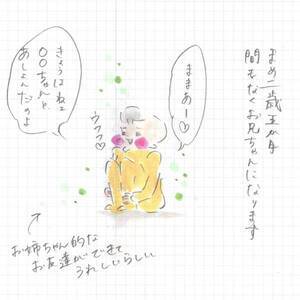 まめ二歳五か月
間もなくお兄ちゃんになります
ままあー♡
ウフフ♡
きょうはねぇ
〇〇ちゃんと
あしょんだのよ
お姉ちゃん的な
お友達ができて
うれしいらしい